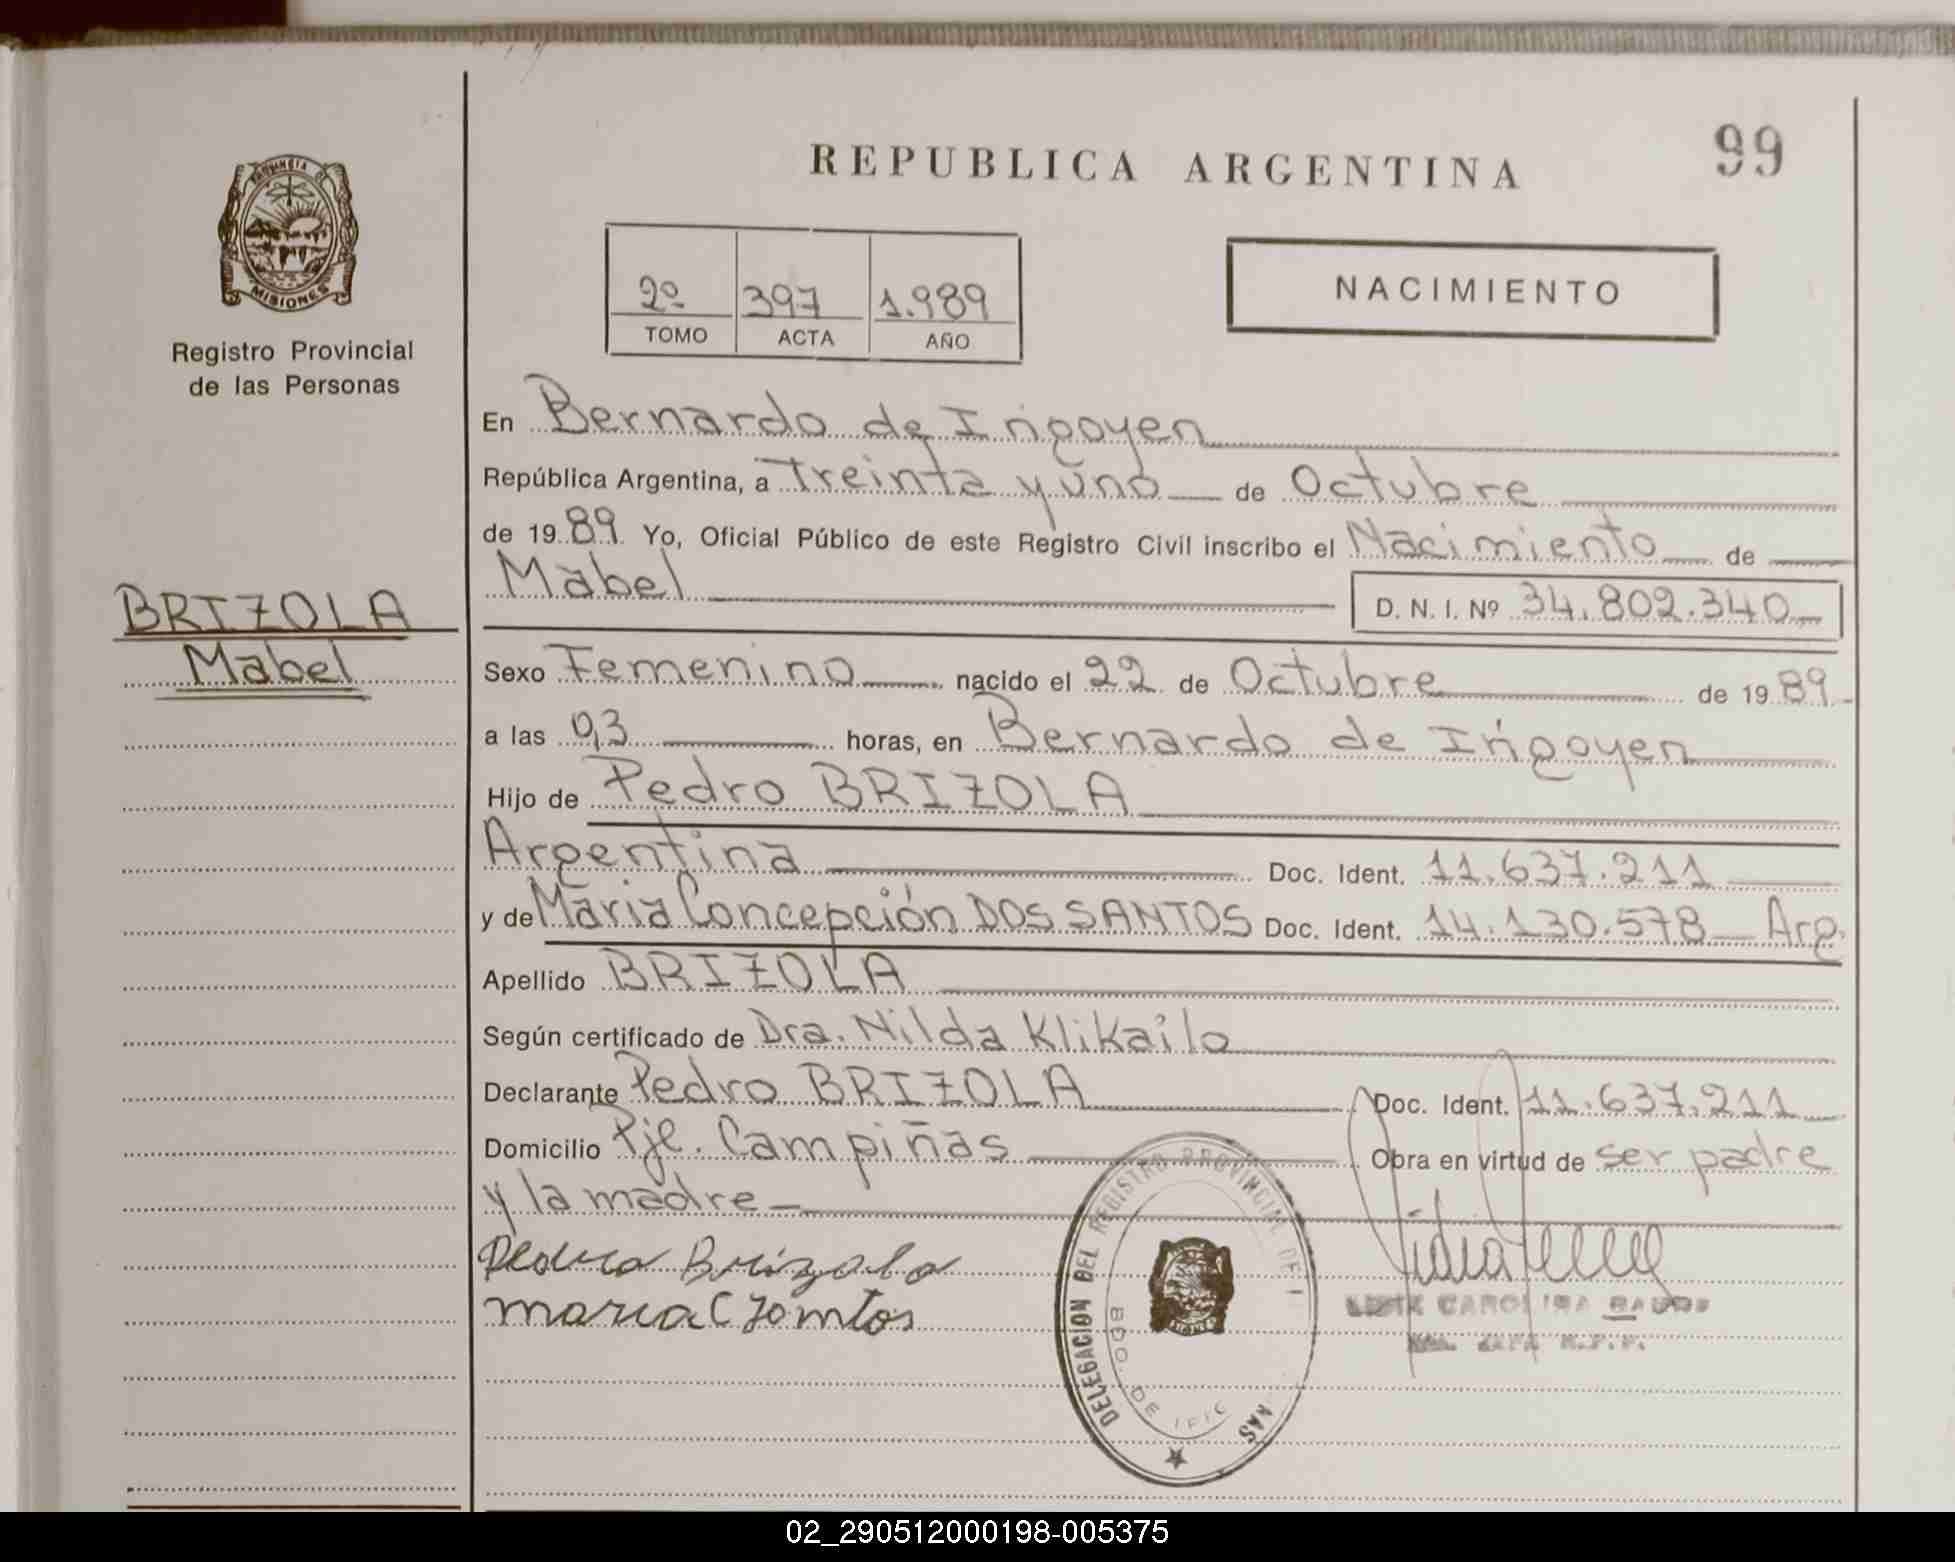 REPUBLICA ARGENTINA
99
PROVINCIA D
MISIONES
Registro Provincial
de las Personas
2º 397 1.989
TOMO ACTA AÑO
NACIMIENTO
En Bernardo de Irigoyen
República Argentina, a Treinta y uno de Octubre
de 19 89 Yo, Oficial Público de este Registro Civil inscribo el Nacimiento de
Mabel D. N. I. Nº 34.802.340
BRIZOLA
Mabel
Sexo Femenino nacido el 22 de Octubre de 19 89
a las 0,3 horas, en Bernardo de Irigoyen
Hijo de Pedro BRIZOLA
Argentina Doc. Ident. 11.637.211
y de Maria Concepción DOS SANTOS Doc. Ident. 14.130.578 Arg.
Apellido BRIZOLA
Según certificado de Dra. Nilda Klikailo
Declarante Pedro BRIZOLA Doc. Ident. 11.637.211
Domicilio Pje. Campiñas Obra en virtud de ser padre
y la madre
Pedro Brizola
maria C
CAROLINA
DELEGACION DEL REGISTRO PROVINCIAL DE
BDO. DE
02_290512000198-005375